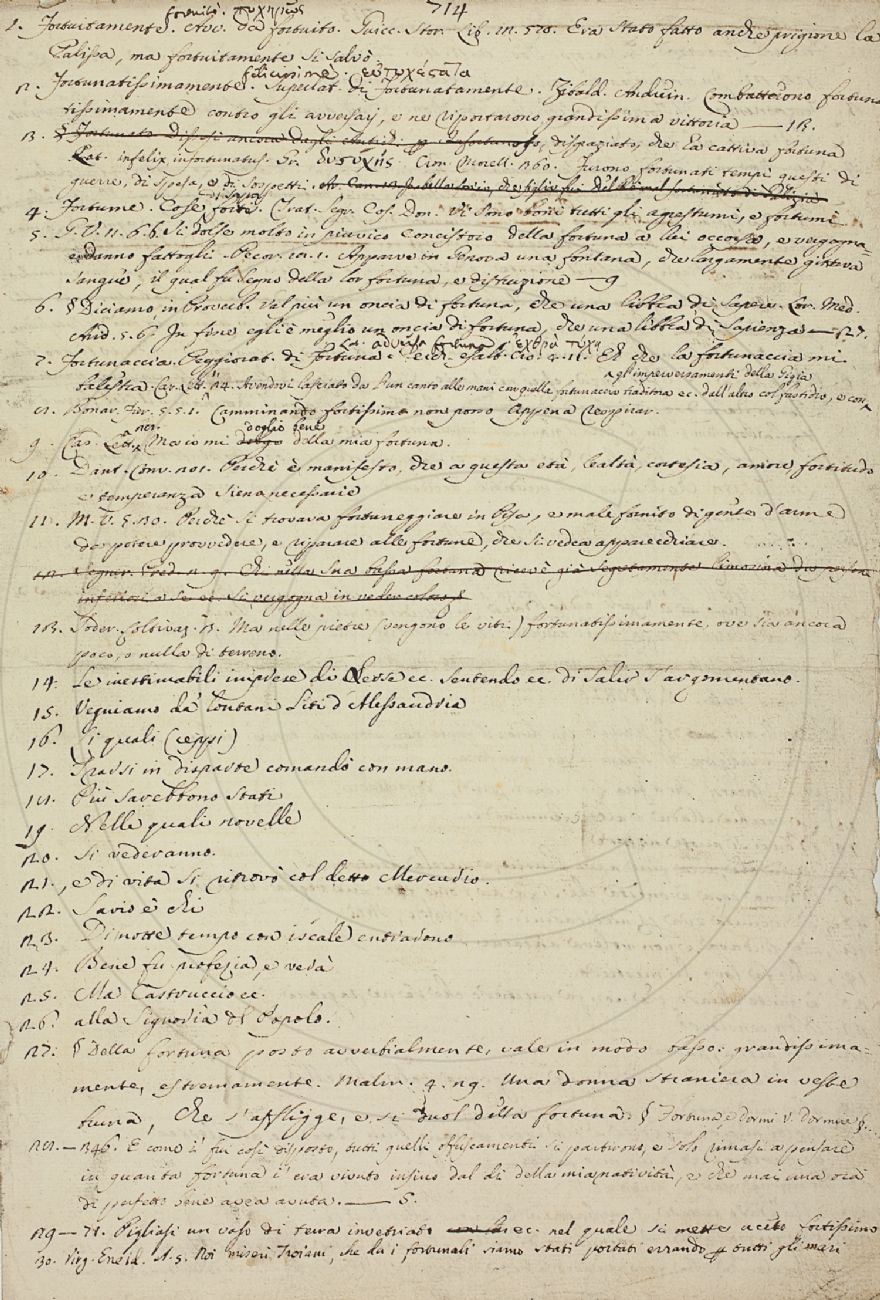 714
fortuitò. τυχηρῶς
1. Fortuitamente. Avv. da fortuito. Guicc. Stor. Lib. 11. 570. Era stato fatto anche prigione la
Palissa, ma fortuitamente si salvò.
felicissimè. εὐτυχέστατα
2. Fortunatissimamente. Superlat. di Fortunatamente. Zibald. Andrein. Combatterono fortuna-
tissimamente contro gli avversarj, e ne riportarono grandissima vittoria — 13.
3. § Fortunato disgraziato, che ha cattiva fortuna
Lat. infelix infortunatus. Gr. δυστυχής. Cron. Morell. 260. Furono fortunati tempi questi di
guerre, di spesa, e di sospetti.
4. Fortume. Cose forte. Trat. Segr. Cos. Don. Vi sono buoni tutti gli agrestumi, e fortumi
5. G. V. 11. 6. 6. Si dolse molto in piuvico concistoro della fortuna a lui occorsa, e vergogna,
e danno fattogli. Pecor. Apparve in Genova una fontana, che largamente gittava
sangue, il qual fu segno della lor fortuna, e distruzione — 9
6. § Diciamo in Proverb. Val più un oncia di fortuna, che una libbra di sapere. Lor. Med.
Arid. 5. 6. In fine egli è meglio un oncia di fortuna, che una libbra di sapienza — 27.
Lat. adversa fortuna ἐχθρὰ τύχη
7. Fortunaccia. Peggiorat. di Fortuna. Cecch. Esalt. Cr. 4. 11. Ed che la fortunaccia mi
gl'imperversamenti della Gigia
Car. Lett. Avendovi lasciato da l'un canto alle mani con quella fortunaccia traditora ec. dall'altro col fastidio, e con
8. Bonar. Fier. 5. 5. 1. Camminando fortissimo non posso appena respirar.
doglio bene
9. Cas. Lett. Ma io mi dolgo della mia fortuna.
10. Dant. Conv. 201. Perchè è manifesto, che a questa età, lealtà, cortesia, amore, fortitudo
e temperanza siena necessarie
11. M. V. 5. 30. Perchè si trovava fortuneggiare in Pisa, e male fornito di gente d'arme
da potere provvedere, e riparare alle fortune, che si vedea apparecchiare.
12. Segner. Pred. 2. 9. Chi nella sua bassa fortuna ricevè già segretamente limosina da persone
inferiori a se ec. si vergogna in veder coloro §
13. Soder. Coltivaz. 13. Ma nelle pietre (vengono le viti) fortunatissimamente, ove sia ancora
poco, o nulla di terreno.
14. Le inestimabili imprese di Xerse ec. sentendo ec. di salir s'argomentano.
15. Vegniamo da' lontani liti d'Alessandria
16. Li quali (ceppi)
17. Trarsi in disparte comandò con mano.
18. Più sarebbono stati
19. Nelle quali novelle
20. Si vederanno.
21. , e di vita si ritrovò col detto Mercudio.
22. Savio è chi
23. Di notte tempo con iscale entrarono
24. Bene fu profezia, e vera
25. Ma Castruccio ec.
26. alla Signoria del Popolo.
27. § Della fortuna posto avverbialmente, vale in modo basso: grandissima-
mente, estremamente. Malm. 4. 29. Una donna straniera in veste
bruna, Che s'affligge, e si duol della fortuna: § Fortuna, e dormi V. Dormire §.
28. — 346. E come i' fui così disposto, tutti quelli offuscamenti si partirono, e solo rimasi a pensare
in quanta fortuna i' era vivuto insino dal dì della mia natività, e che mai una ora
di perfetto bene avea avuta. — 5.
29 — 71. Pigliasi un vaso di terra invetriato ec. nel quale si mette aceto fortissimo
30. Virg. Eneid. A. S. Noi miseri Troiani, che da i fortunali siamo stati portati errando p tutti gli mari